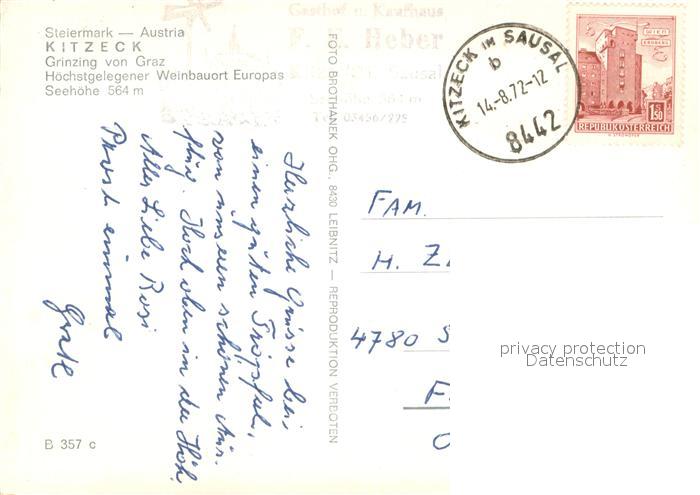 Steiermark — Austria
KITZECK
Grinzing von Graz
Höchstgelegener Weinbauort Europas
Seehöhe 564 m
Gasthof u. Kaufhaus
Heber
Seehöhe 564 m
KITZECK IM SAUSAL
b
14.-8.72-12
8442
WIEN
ERDBERG
1.50
REPUBLIK ÖSTERREICH
FOTO BROTHANEK OHG., 8430 LEIBNITZ — REPRODUKTION VERBOTEN
Herzliche Grüsse bei
einen guten Tröpferl,
von unseren schönen Aus-
flug. Hoch oben in der Höh.
Alles Liebe Rosi
Prost einmal
FAM.
H. Z
4780 S
privacy protection
Datenschutz
B 357 c